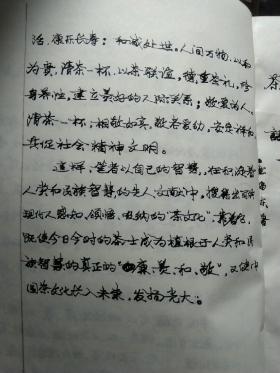 活,康乐长寿;和诚处世。人间万物,以和
为贵,清茶一杯,以茶联谊,情重茶礼,修
身养性,建立美好的人际关系;敬爱为人。
清茶一杯,相敬如宾,敬老爱幼,安乐祥和
共促社会精神文明。
这样,笔者以自己的智慧,在积淀着
人类和民族智慧的先人文献中,搜寻出可供
现代人感知、领悟、吸纳的“茶文化”
既使今日今时的茶士成为植根于人类和民
族智慧的真正的“康、美、和、敬”,又使中
国茶文化深入未来,发扬光大。